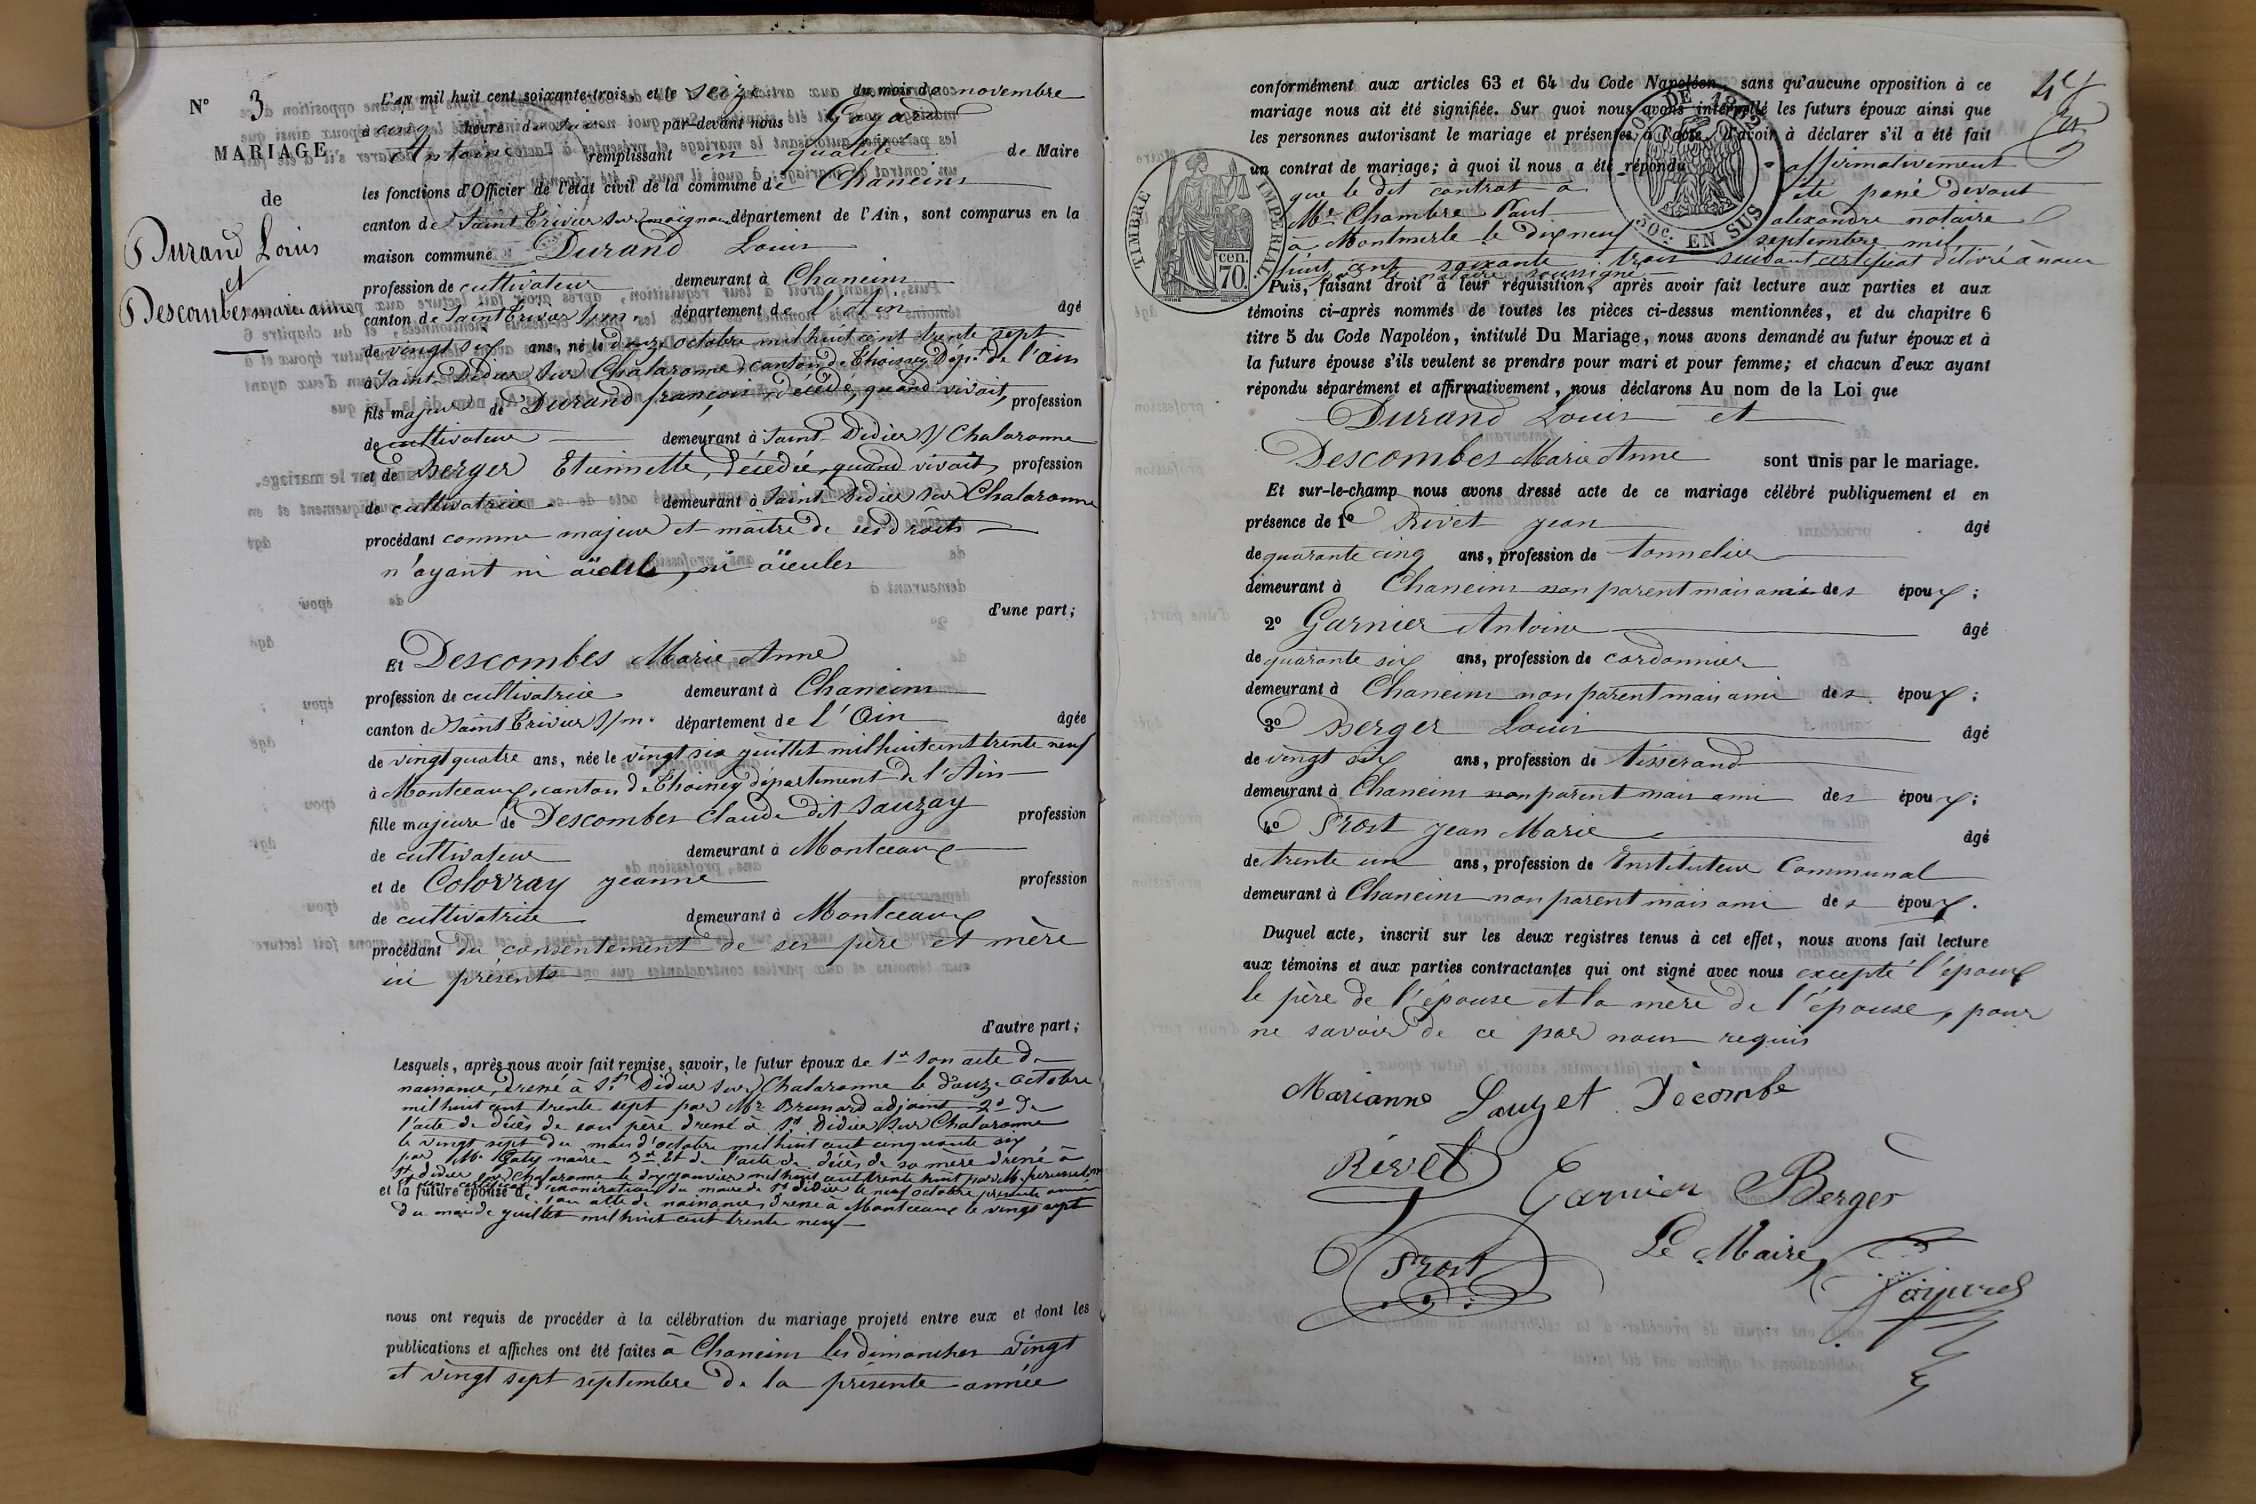 N° 3
MARIAGE
de
Durand Louis
et
Descombes marie anne
L'AN mil huit cent soixante-trois et le seize du mois de novembre
à cinq heure du soir par-devant nous Gayard
Antoine remplissant en qualité de Maire
les fonctions d'Officier de l'état civil de la commune de Chaneins
canton de Saint Trivier sur moignans département de l'Ain, sont comparus en la
maison commune Durand Louis
profession de cultivateur demeurant à Chaneins
canton de Saint Trivier s/m. département de l'Ain âgé
de vingt six ans, né le douze octobre mil huit cent trente sept
à Saint Didier sur Chalaronne, canton de Thoissey Dépt. de l'ain
fils majeur de Durand françois, décédé, quand vivait, profession
de cultivateur demeurant à Saint Didier s/ Chalaronne
et de Berger Etiennette, décédée, quand vivait, profession
de cultivatrice demeurant à Saint Didier sur Chalaronne
procédant comme majeur et maître de ses droits
n'ayant ni aïeuls, ni aïeules
d'une part;
Et Descombes Marie Anne
profession de cultivatrice demeurant à Chaneins
canton de Saint Trivier s/m. département de l'Ain âgée
de vingt quatre ans, née le vingt six juillet mil huit cent trente neuf
à Montceaux, canton de Thoissey département de l'Ain
fille majeure de Descombes Claude dit Sauzay profession
de cultivateur demeurant à Montceaux
et de Colovray jeanne profession
de cultivatrice demeurant à Montceaux
procédant du consentement de ses père et mère
ici présents
d'autre part;
Lesquels, après nous avoir fait remise, savoir, le futur époux de 1er son acte de
naissance, dressé à St Didier sur Chalaronne le douze octobre
mil huit cent trente sept par Mr. Brunard adjoint 2d de
l'acte de décès de son père dressé à St Didier sur Chalaronne
le vingt sept du mois d'octobre mil huit cent cinquante six
par Mr. maire 3e Et de l'acte de décès de sa mère dressé à
St didier sur Chalaronne le dix janvier mil huit cent trente huit par Mr.
certificat d'exonération du maire de St didier le neuf octobre présente année
et la future épouse de son acte de naissance, dressé à Montceaux le vingt sept
du mois de juillet mil huit cent trente neuf
nous ont requis de procéder à la célébration du mariage projeté entre eux et dont les
publications et affiches ont été faites à Chaneins les dimanches vingt
et vingt sept septembre de la présente année
conformément aux articles 63 et 64 du Code Napoléon, sans qu'aucune opposition à ce
mariage nous ait été signifiée. Sur quoi nous avons interpellé les futurs époux ainsi que
les personnes autorisant le mariage et présentes à l'acte, d'avoir à déclarer s'il a été fait
un contrat de mariage; à quoi il nous a été répondu affirmativement
que le dit contrat a été passé devant
Mr. Chambre Paul alexandre notaire
à Montmerle le dix neuf septembre mil
huit cent soixante trois suivant certificat délivré à nous
par le notaire soussigné
Puis, faisant droit à leur réquisition, après avoir fait lecture aux parties et aux
témoins ci-après nommés de toutes les pièces ci-dessus mentionnées, et du chapitre 6
titre 5 du Code Napoléon, intitulé Du Mariage, nous avons demandé au futur époux et à
la future épouse s'ils veulent se prendre pour mari et pour femme; et chacun d'eux ayant
répondu séparément et affirmativement, nous déclarons Au nom de la Loi que
Durand Louis et
Descombes Marie Anne sont unis par le mariage.
Et sur-le-champ nous avons dressé acte de ce mariage célébré publiquement et en
présence de 1° Rivet jean âgé
de quarante cinq ans, profession de tonnelier
demeurant à Chaneins non parent mais ami des époux;
2° Garnier Antoine âgé
de quarante six ans, profession de cordonnier
demeurant à Chaneins non parent mais ami des époux;
3° Berger Louis âgé
de vingt six ans, profession de tisserand
demeurant à Chaneins non parent mais ami des époux;
4° Prost jean Marie âgé
de trente un ans, profession de Instituteur Communal
demeurant à Chaneins non parent mais ami des époux.
Duquel acte, inscrit sur les deux registres tenus à cet effet, nous avons fait lecture
aux témoins et aux parties contractantes qui ont signé avec nous excepté l'époux
le père de l'épouse et la mère de l'épouse, pour
ne savoir de ce par nous requis
Marianne Sauzet Décombe
Rivet
Garnier Berger
Prost
Le Maire
TIMBRE IMPERIAL
70 cen.
DE 1862
50c. EN SUS